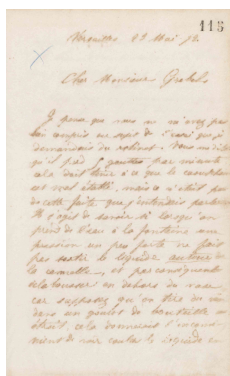 115
Versailles 23 Mai 72
Cher Monsieur
Je pense que vous ne m'avez pas
bien compris au sujet de que je
demandais du robinet. Vous me dites
qu'il perd gouttes par minute
cela doit tenir à ce que le
est mal établi, mais ce n'était pas
de cette fuite que j'entendais parler
Il s'agit de savoir si lorsqu'on
prend de l'eau à la fontaine une
pression un peu forte ne fait
pas sortir le liquide autour de
la cannelle, et par conséquent
en dehors du vase,
car supposez qu'on tire du vin
dans un goulot de bouteille
étroit, cela donnerait l'inconvé-
nient de voir couler le liquide en